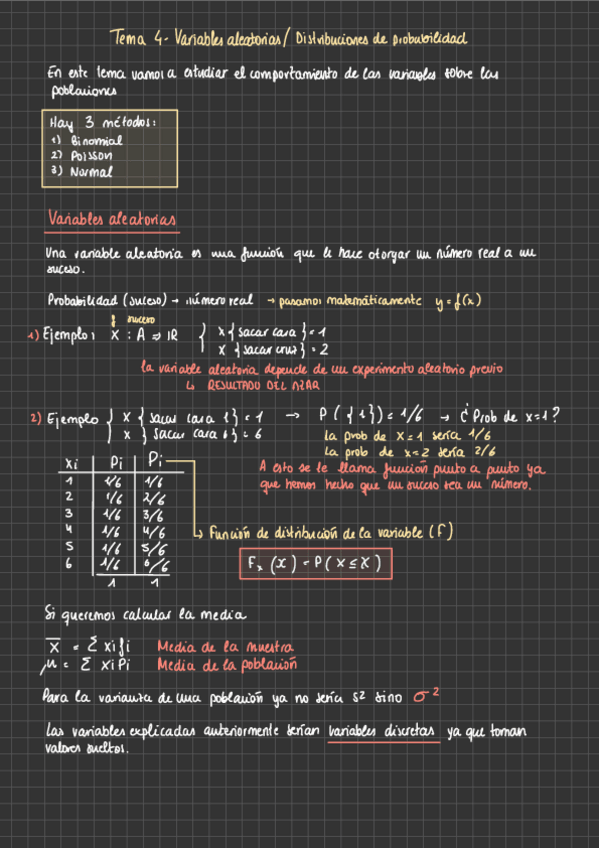 Tema 4- Variables aleatorias/ Distribuciones de probabilidad
En este tema vamos a estudiar el comportamiento de las variables sobre las
poblaciones
Hay 3 métodos:
1) Binomial
2) Poisson
3) Normal
Variables aleatorias
Una variable aleatoria es una función que le hace otorgar un número real a un
suceso.
Probabilidad (suceso) → número real → pasamos matemáticamente y=f(x)
f suceso
1) Ejemplo: X : A ⇒ IR { x { sacar cara } = 1
x { sacar cruz } = 2
la variable aleatoria depende de un experimento aleatorio previo
↳ RESULTADO DEL AZAR
2) Ejemplo { x { sacar cara 1 } = 1 → P ( { 1 } ) = 1/6 → ¿ Prob de x=1 ?
{ x } sacar cara 6 } = 6
La prob de X = 1 sería 1/6
La prob de x=2 sería 2/6
A esto se le llama función punto a punto ya
que hemos hecho que un suceso sea un número.
xi Pi Pi
1 1/6 1/6
2 1/6 2/6
3 1/6 3/6
4 1/6 4/6
5 1/6 5/6
6 1/6 6/6
1 1
↳ Función de distribución de la variable (F)
Fx (x) = P ( X ≤ x )
Si queremos calcular la media
x̄ = Σ xi fi Media de la muestra
μ = Σ xi Pi Media de la población
Para la varianza de una población ya no sería s² sino σ²
Las variables explicadas anteriormente serían variables discretas ya que toman
valores sueltos.